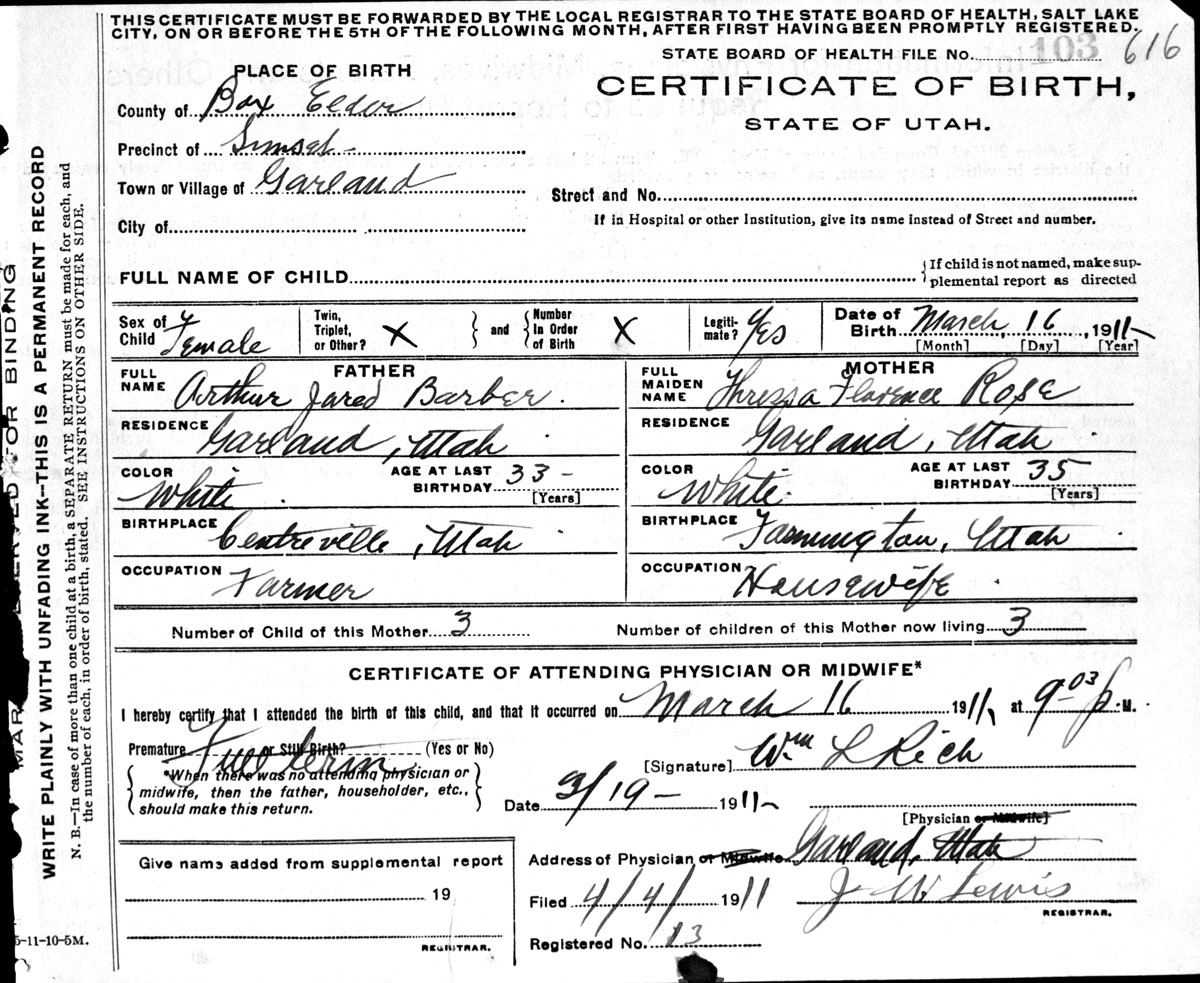 THIS CERTIFICATE MUST BE FORWARDED BY THE LOCAL REGISTRAR TO THE STATE BOARD OF HEALTH, SALT LAKE
CITY, ON OR BEFORE THE 5TH OF THE FOLLOWING MONTH, AFTER FIRST HAVING BEEN PROMPTLY REGISTERED.
STATE BOARD OF HEALTH FILE No. 103 616
PLACE OF BIRTH
CERTIFICATE OF BIRTH,
STATE OF UTAH.
County of Box Elder
Precinct of Sunset
Town or Village of Garland
Street and No.
City of
If in Hospital or other Institution, give its name instead of Street and number.
FULL NAME OF CHILD
If child is not named, make sup-
plemental report as directed
Sex of Child Female
Twin, Triplet, or Other? X
and
Number In Order of Birth X
Legiti-mate? Yes
Date of Birth March, 16, 1911
[Month] [Day] [Year]
FATHER
FULL NAME Arthur Jared Barber.
RESIDENCE Garland, Utah
COLOR White
AGE AT LAST BIRTHDAY 33 -
[Years]
BIRTHPLACE Centreville, Utah
OCCUPATION Farmer
MOTHER
FULL MAIDEN NAME Florence Rose
RESIDENCE Garland, Utah
COLOR White
AGE AT LAST BIRTHDAY 35
[Years]
BIRTHPLACE Farmington, Utah
OCCUPATION Housewife
Number of Child of this Mother 3
Number of children of this Mother now living 3
CERTIFICATE OF ATTENDING PHYSICIAN OR MIDWIFE*
I hereby certify that I attended the birth of this child, and that it occurred on March 16 1911, at 9-03 P. M.
Premature or Still Birth? (Yes or No)
Full term
*When there was no attending physician or
midwife, then the father, householder, etc.,
should make this return.
[Signature] Wm L Rich
Date 3/19- 1911-
[Physician or Midwife]
Give name added from supplemental report
19
REGISTRAR.
Address of Physician or Midwife Garland, Utah
Filed 4/4/ 1911
J W Lewis
REGISTRAR.
Registered No. 13
5-11-10-5M.
FOR BINDING
WRITE PLAINLY WITH UNFADING INK—THIS IS A PERMANENT RECORD
N. B.—In case of more than one child at a birth, a SEPARATE RETURN must be made for each, and
the number of each, in order of birth, stated. SEE INSTRUCTIONS ON OTHER SIDE.